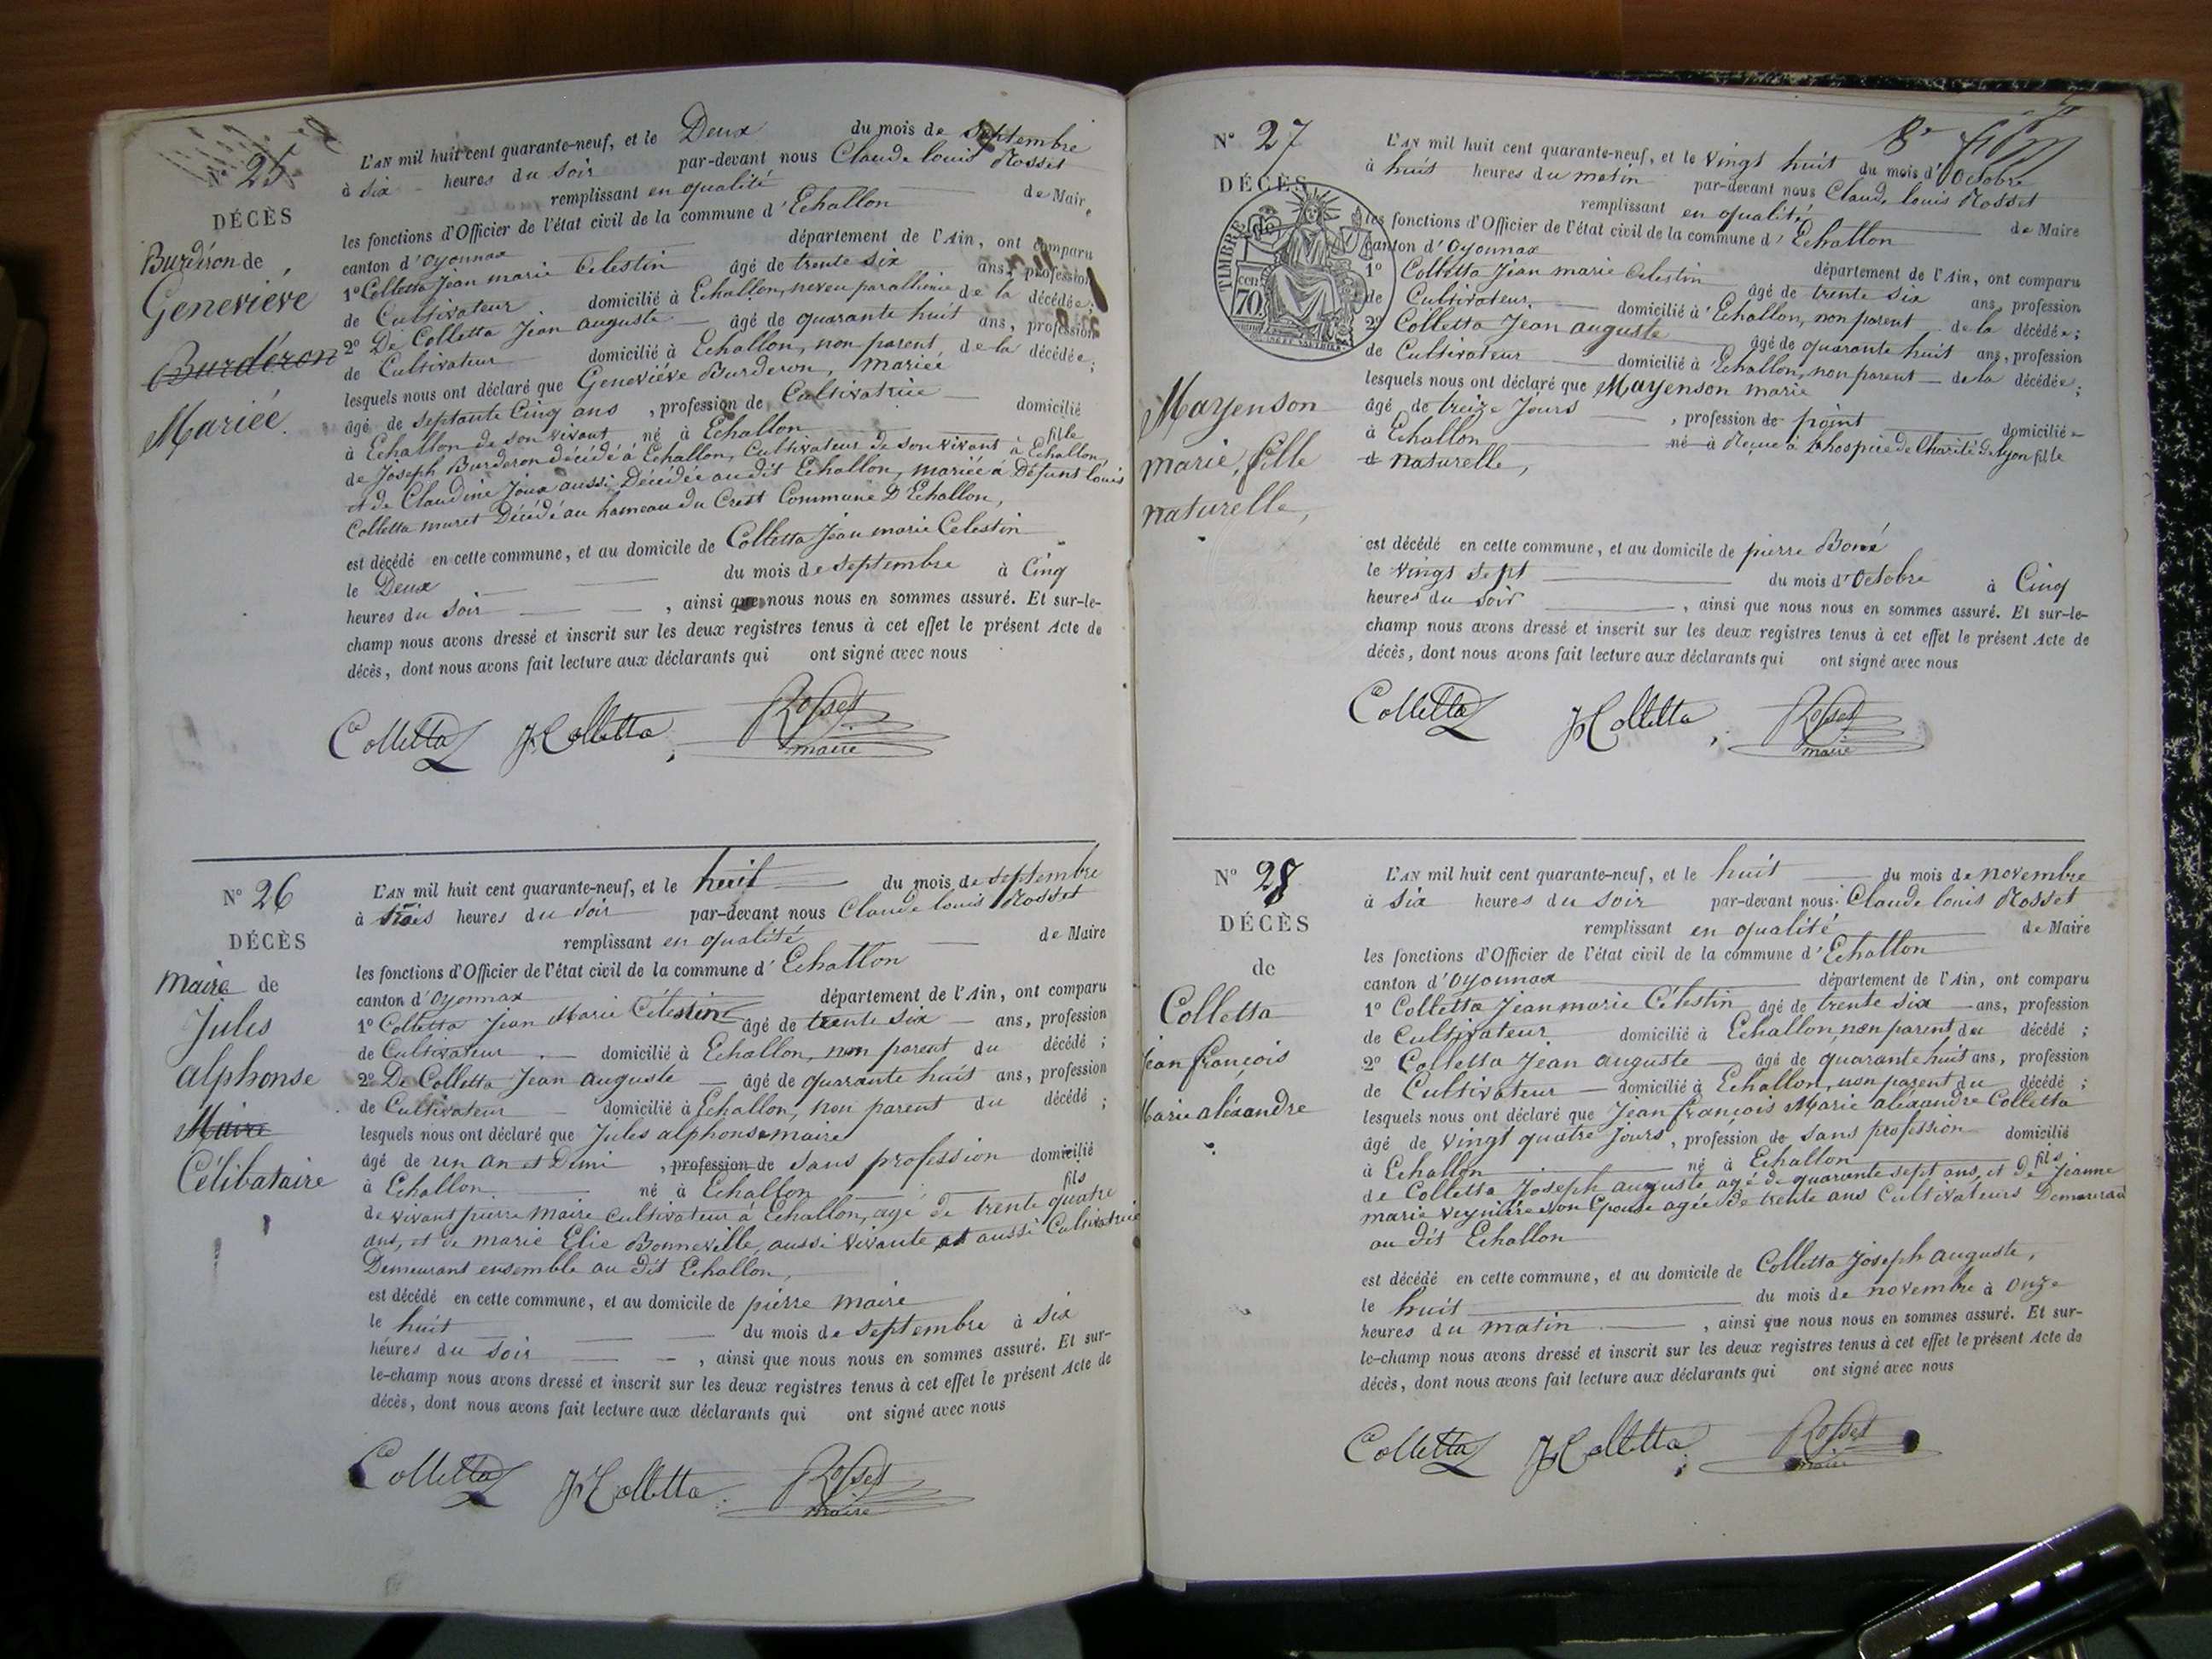 25
DÉCÈS
Burdéron de
Geneviéve
Burdéron
Mariée.
L'AN mil huit cent quarante-neuf, et le Deux du mois de Septembre
à Six heures du soir par-devant nous Claude louis Rosset
remplissant en qualité de Mair
les fonctions d'Officier de l'état civil de la commune d'Echallon
canton d'Oyonnax département de l'Ain, ont comparu
1º Colletta Jean marie Celestin âgé de trente six ans, profession
de Cultivateur domicilié à Echallon, neveu par allience de la décédée;
2º De Colletta Jean auguste âgé de quarante huit ans, profession
de Cultivateur domicilié à Echallon, non parent de la décédée;
lesquels nous ont déclaré que Geneviéve Burderon, mariée
âgé de septante Cinq ans, profession de Cultivatrice domicilié
à Echallon de son vivant né à Echallon fille
de Joseph Burderon décédé à Echallon, Cultivateur de son vivant à Echallon,
et de Claudine Joux aussi Décédée au dit Echallon, mariée à Défunt louis
Colletta muret Décédé au hameau du Crest Commune D'Echallon,
est décédé en cette commune, et au domicile de Colletta Jean marie Celestin
le Deux du mois de septembre à Cinq
heures du soir, ainsi que nous nous en sommes assuré. Et sur-le-
champ nous avons dressé et inscrit sur les deux registres tenus à cet effet le présent Acte de
décès, dont nous avons fait lecture aux déclarants qui ont signé avec nous
Colletta JhColletta Rosset
maire
Nº 26
DÉCÈS
Maire de
Jules
alphonse
Maire
Célibataire
L'AN mil huit cent quarante-neuf, et le huit du mois de septembre
à heures du soir par-devant nous Claude louis Rosset
remplissant en qualité de Maire
les fonctions d'Officier de l'état civil de la commune d'Echallon
canton d'Oyonnax département de l'Ain, ont comparu
1º Colletta Jean Marie Célestin âgé de trente six ans, profession
de Cultivateur domicilié à Echallon, non parent du décédé;
2º De Colletta Jean auguste âgé de quarante huit ans, profession
de Cultivateur domicilié à Echallon, non parent du décédé;
lesquels nous ont déclaré que Jules alphonse maire
âgé de un an et Demi, profession de sans profession domicilié
à Echallon né à Echallon fils
de vivant pierre maire Cultivateur à Echallon, agé de trente quatre
ans, et de marie Elie Bonneville, aussi vivante et aussi Cultivatrice
Demeurant ensemble au dit Echallon,
est décédé en cette commune, et au domicile de pierre maire
le huit du mois de septembre à six
heures du soir, ainsi que nous nous en sommes assuré. Et sur-
le-champ nous avons dressé et inscrit sur les deux registres tenus à cet effet le présent Acte de
décès, dont nous avons fait lecture aux déclarants qui ont signé avec nous
Colletta JhColletta Rosset
maire
Nº 27
DÉCÈS
TIMBRE
70.
Mayenson
marie, fille
naturelle,
L'AN mil huit cent quarante-neuf, et le vingt huit du mois d'Octobre
à huit heures du matin par-devant nous Claude louis Rosset
remplissant en qualité de Maire
les fonctions d'Officier de l'état civil de la commune d'Echallon
canton d'Oyonnax département de l'Ain, ont comparu
1º Colletta Jean marie Celestin âgé de trente six ans, profession
de Cultivateur domicilié à Echallon, non parent de la décédée;
2º Colletta Jean auguste âgé de quarante huit ans, profession
de Cultivateur domicilié à Echallon, non parent de la décédée;
lesquels nous ont déclaré que Mayenson marie
âgé de treize Jours, profession de point domicilié
à Echallon né à Reçue à l'hospice de Charité de Lyon fille
de naturelle,
est décédé en cette commune, et au domicile de pierre
le vingt sept du mois d'Octobre à Cinq
heures du soir, ainsi que nous nous en sommes assuré. Et sur-le-
champ nous avons dressé et inscrit sur les deux registres tenus à cet effet le présent Acte de
décès, dont nous avons fait lecture aux déclarants qui ont signé avec nous
Colletta JhColletta Rosset
maire
Nº 28
DÉCÈS
de
Colletta
Jean françois
Marie aléxandre
L'AN mil huit cent quarante-neuf, et le huit du mois de novembre
à six heures du soir par-devant nous Claude louis Rosset
remplissant en qualité de Maire
les fonctions d'Officier de l'état civil de la commune d'Echallon
canton d'Oyonnax département de l'Ain, ont comparu
1º Colletta Jean marie Célestin âgé de trente six ans, profession
de Cultivateur domicilié à Echallon, non parent du décédé;
2º Colletta Jean auguste âgé de quarante huit ans, profession
de Cultivateur domicilié à Echallon, non parent du décédé;
lesquels nous ont déclaré que Jean françois Marie aléxandre Colletta
âgé de vingt quatre Jours, profession de sans profession domicilié
à Echallon né à Echallon fils
de Colletta Joseph auguste agé de quarante sept ans, et de Jeanne
marie son Epouse agée de trente ans Cultivateurs Demeurant
au dit Echallon
est décédé en cette commune, et au domicile de Colletta Joseph auguste,
le huit du mois de novembre à Onze
heures du matin, ainsi que nous nous en sommes assuré. Et sur-
le-champ nous avons dressé et inscrit sur les deux registres tenus à cet effet le présent Acte de
décès, dont nous avons fait lecture aux déclarants qui ont signé avec nous
Colletta JhColletta Rosset
maire